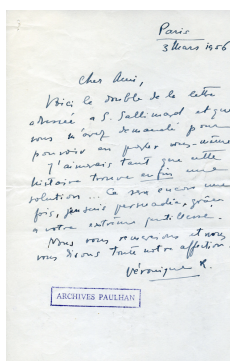 Paris
3 Mars 1956
Cher Ami,
Voici le double de la lettre
adressée à G. Gallimard et que
vous m'avez demandé pour
pouvoir en parler vous-même.
J'aimerais tant que cette
histoire trouve enfin une
solution... Ce sera encore une
fois, j'en suis persuadée, grâce
à votre extrême gentillesse.
Nous vous remercions et nous
vous disons toute notre affection.
Véronique
ARCHIVES PAULHAN